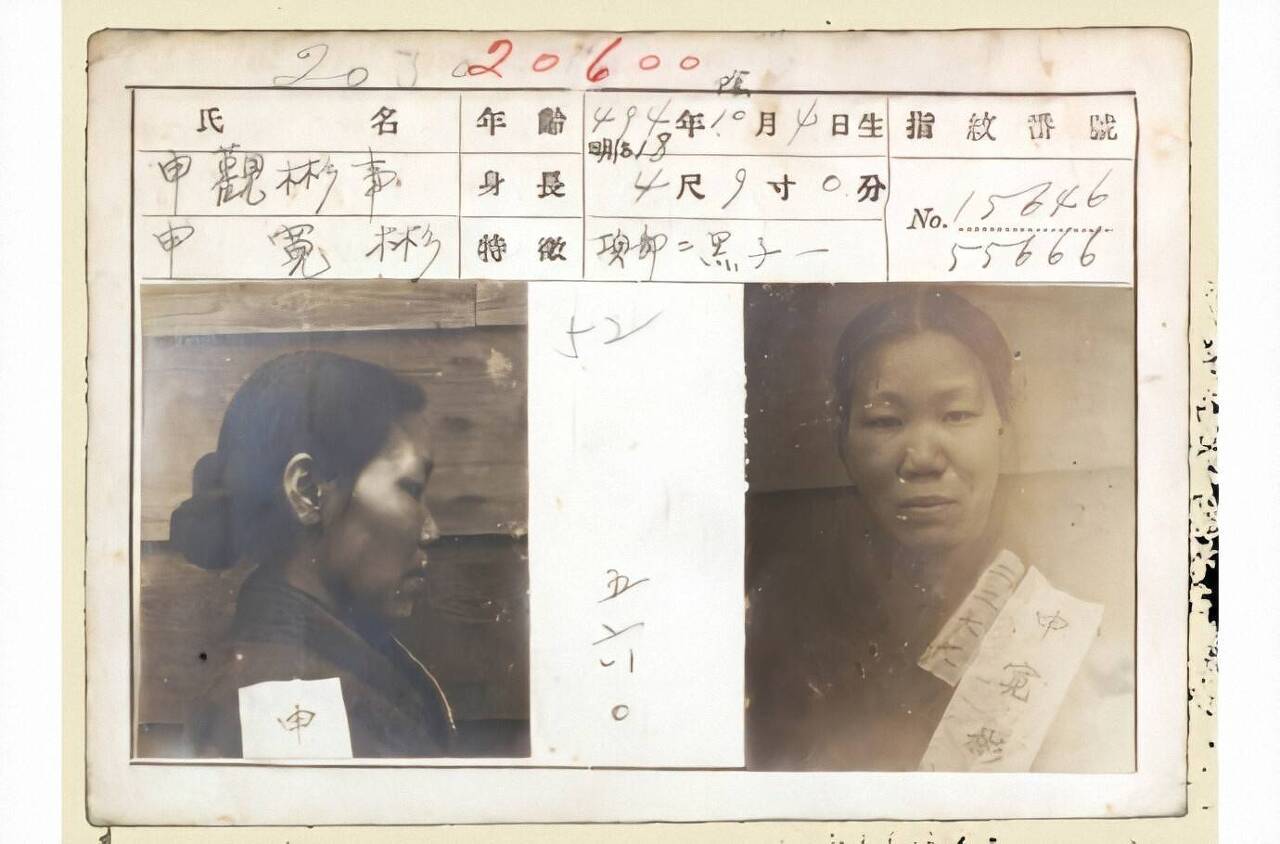 20 20600
氏名 年齡 494年10月4日生 指紋番號
明治18
申觀彬事 身長 4尺9寸0分 No. 15646
申寬彬 特徵 項部ニ黒子一 55666
52
五
六
〇
申
三三六六
申寬彬